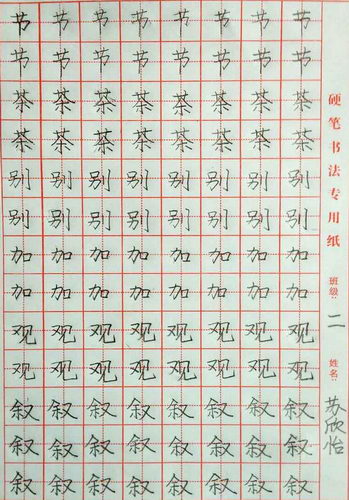 节节节节节节节节
节节节节节节节节
茶茶茶茶茶茶茶茶
茶茶茶茶茶茶茶茶
别别别别别别别别
别别别别别别别别
加加加加加加加加
加加加加加加加加
观观观观观观观观
观观观观观观观观
叙叙叙叙叙叙叙叙
叙叙叙叙叙叙叙叙
叙叙叙叙叙叙叙叙
硬笔书法专用纸 班级: 二 姓名: 苏欣怡